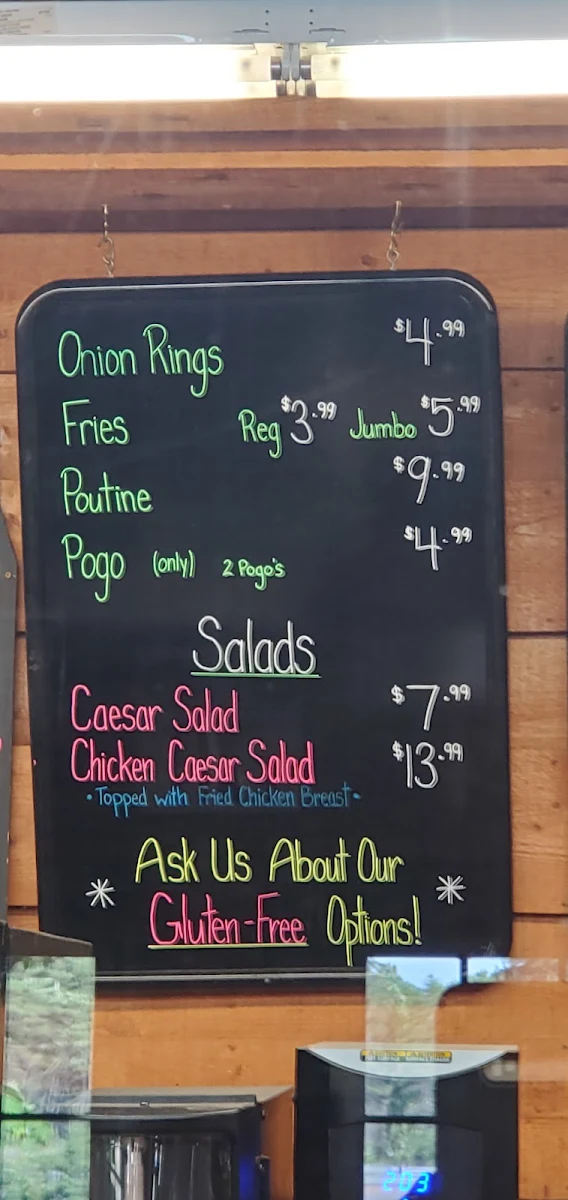 Onion Rings $4.99
Fries Reg $3.99 Jumbo $5.99
Poutine $9.99
Pogo (only) 2 Pogo's $4.99
Salads
Caesar Salad $7.99
Chicken Caesar Salad $13.99
• Topped with Fried Chicken Breast •
Ask Us About Our
* Gluten-Free Options! *
203